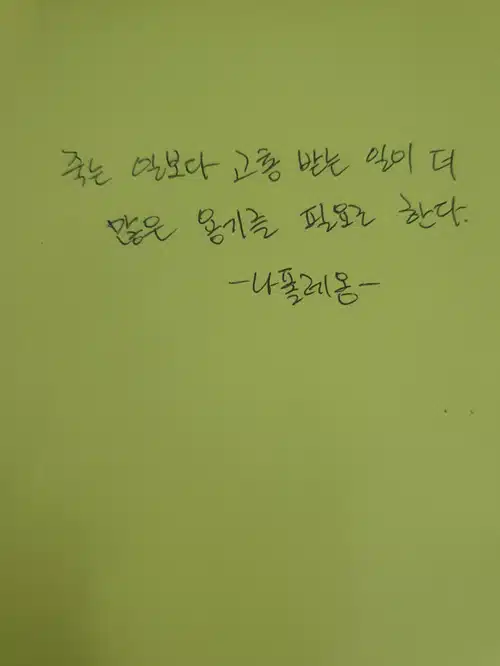 죽는 일보다 고통 받는 일이 더
많은 용기를 필요로 한다.
-나폴레옹-